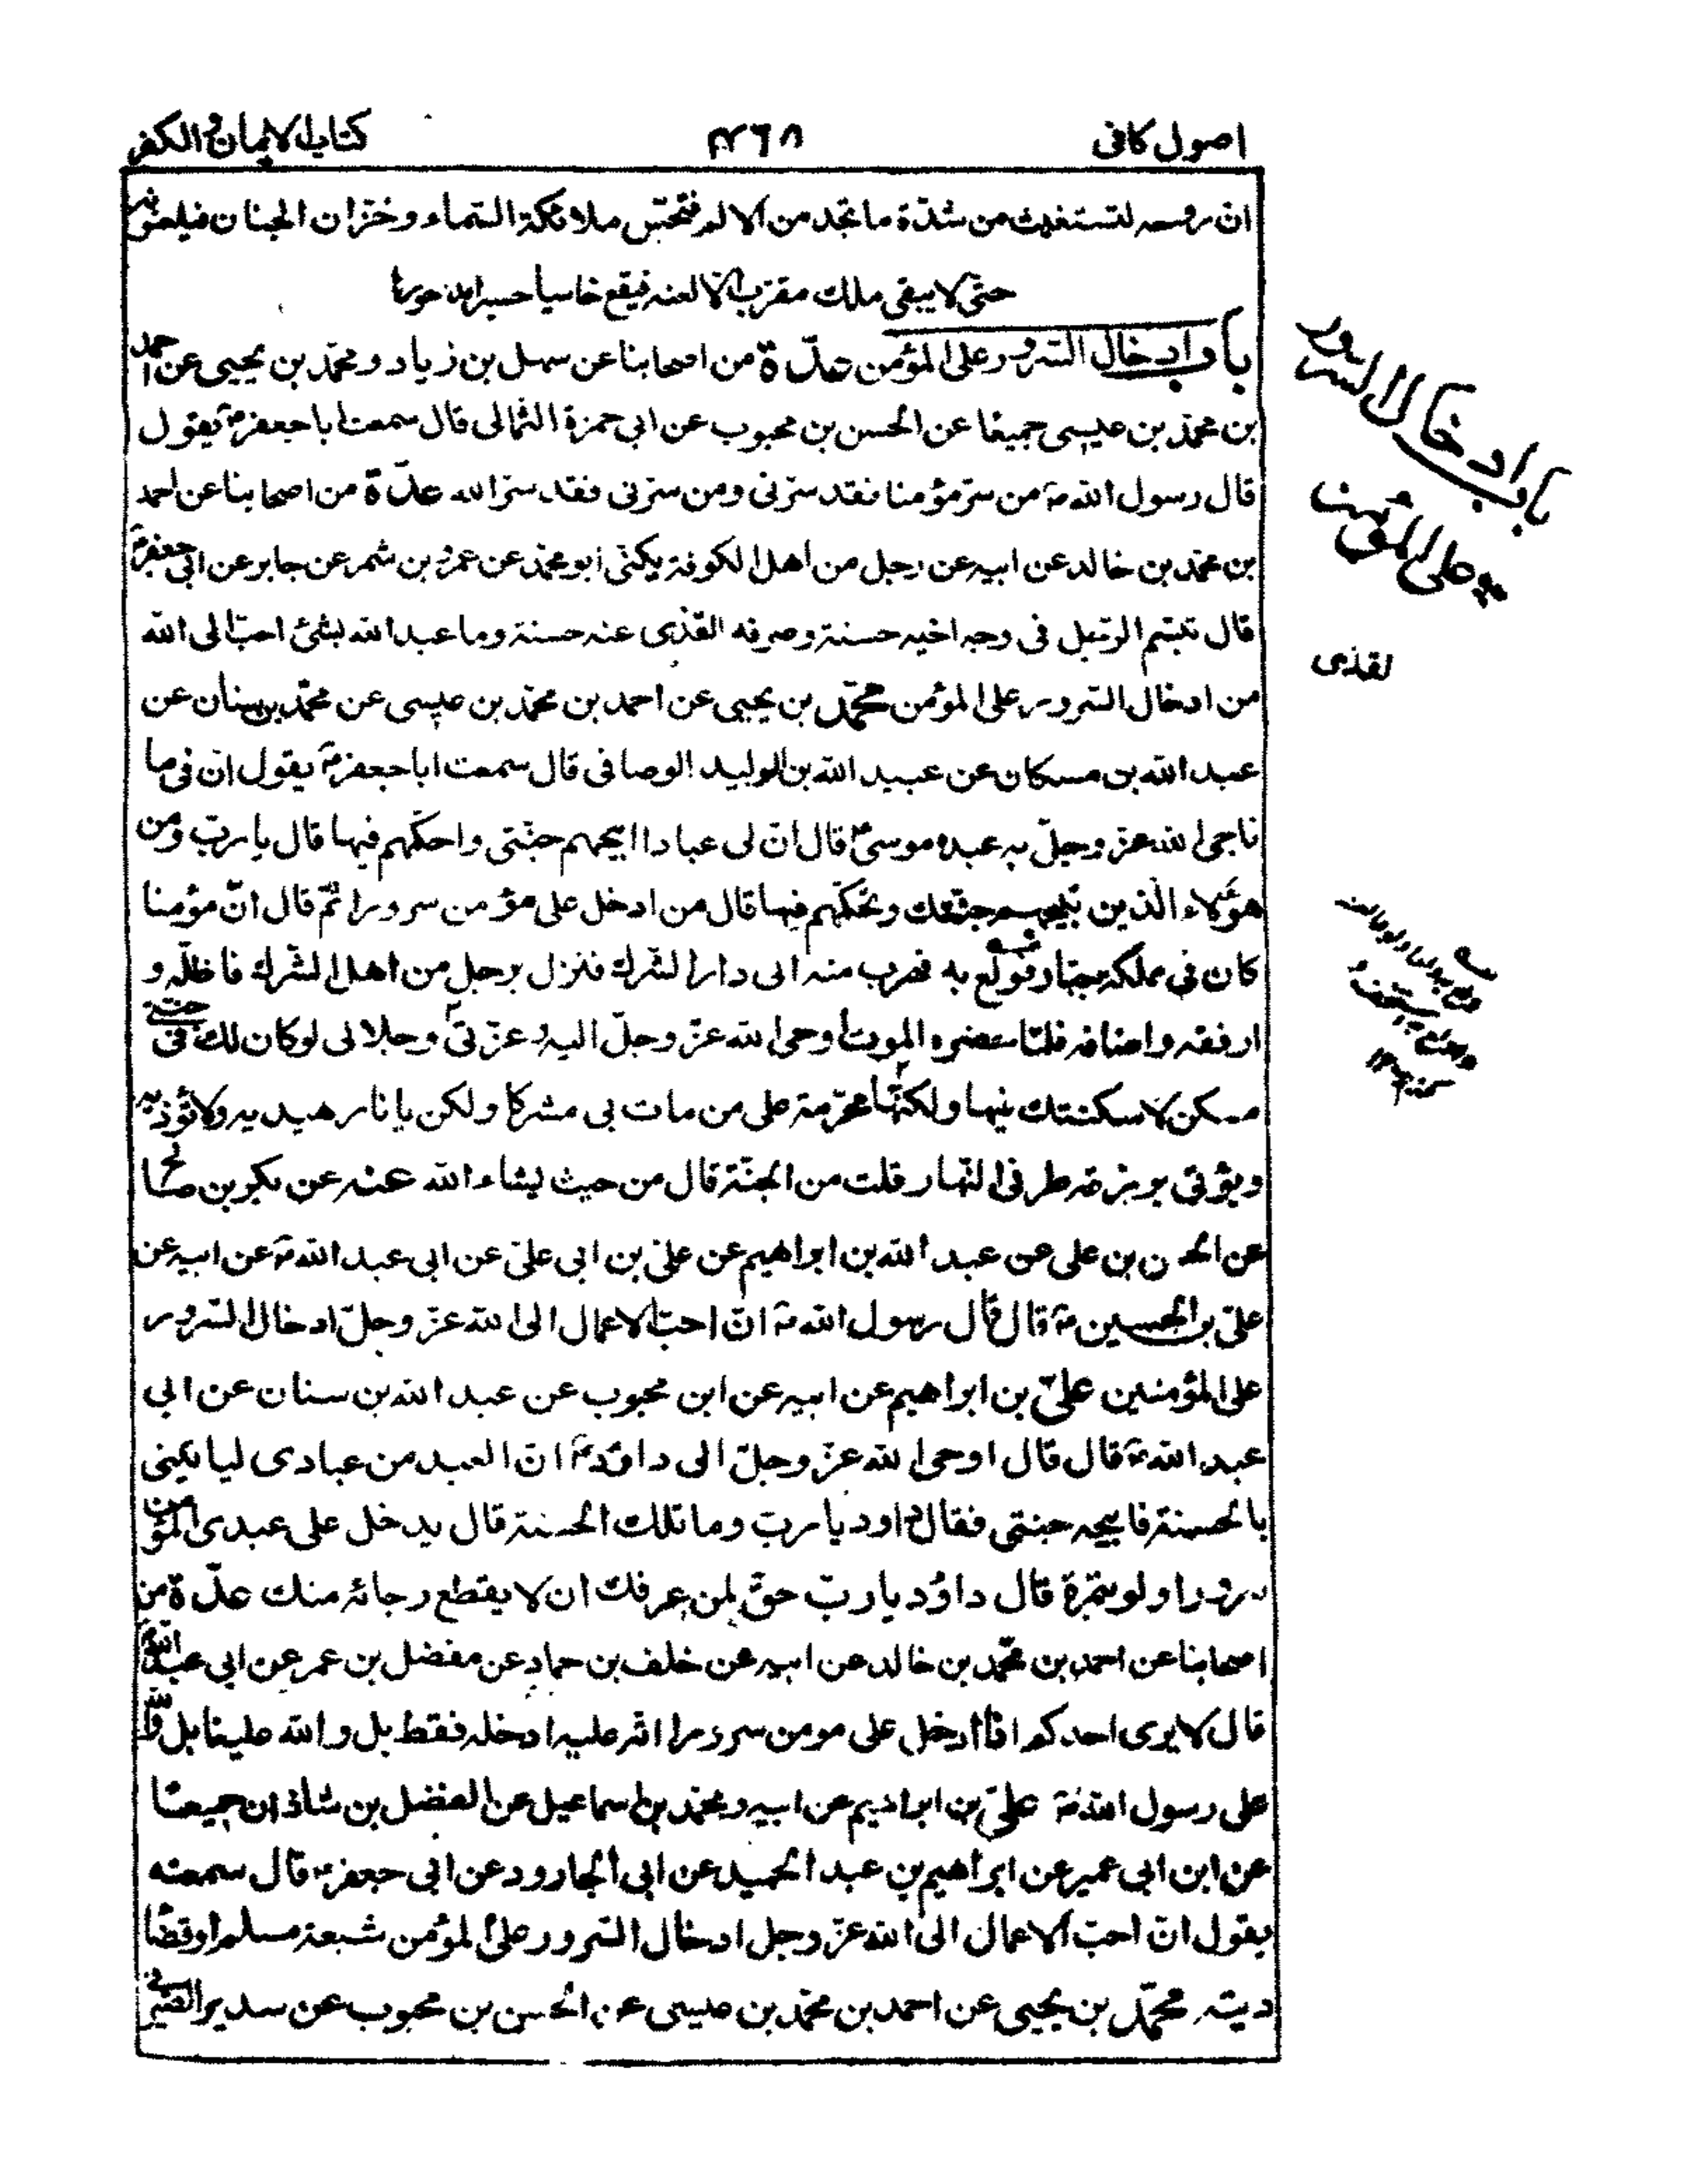 اصول كافى ٤٦٨ كتاب الايمان والكفر
ان روحه لتستغيث من شدّة ما تجد من الالم فتحسّ ملائكة السّماء وخزّان الجنان فيلعنونه
حتّى لا يبقى ملك مقرّب الّا لعنه فيقع خاسيا حسيرا مدحورا
باب ادخال السّرور على المؤمن عدّة من اصحابنا عن سهل بن زياد ومحمّد بن يحيى عن احمد
بن محمّد بن عيسى جميعًا عن الحسن بن محبوب عن ابى حمزة الثمالى قال سمعت ابا جعفرؑ يقول
قال رسول اللهؐ من سرّ مؤمنا فقد سرّنى ومن سرّنى فقد سرّ الله عدّة من اصحابنا عن احمد
بن محمّد بن خالد عن ابيه عن رجل من اهل الكوفة يكنّى ابو محمّد عن عمرو بن شمر عن جابر عن ابى جعفرؑ
قال تبسّم الرّجل فى وجه اخيه حسنة وصرفه القذى عنه حسنة وما عبد الله بشئ احبّ الى الله
من ادخال السّرور على المؤمن محمّد بن يحيى عن احمد بن محمّد بن عيسى عن محمّد بن سنان عن
عبد الله بن مسكان عن عبيد الله بن الوليد الوصافى قال سمعت ابا جعفرؑ يقول ان فى ما
ناجى الله عزّ وجلّ به عبده موسىؑ قال انّ لى عبادا ابيحهم جنّتى واحكّمهم فيها قال يا ربّ ومن
هؤلاء الّذين تبيحهم جنّتك وتحكّمهم فيها قال من ادخل على مؤمن سرورا ثمّ قال انّ مؤمنا
كان فى مملكة جبّار فولع به فهرب منه الى دار الشّرك فنزل برجل من اهل الشّرك فاظلّه و
ارفقه واضافه فلمّا حضره الموت اوحى الله عزّ وجلّ اليه وعزّتى وجلالى لو كان لك فى جنّتى
مسكن لاسكنتك فيها ولكنّها محرّمة على من مات بى مشركا ولكن يا نار هيديه ولا تؤذيه
ويؤتى برزقه طرفى النّهار قلت من الجنّة قال من حيث يشاء الله عنه عن بكر بن صالح
عن الحسن بن على عن عبد الله بن ابراهيم عن علىّ بن ابى علىّ عن ابى عبد اللهؑ عن ابيه عن
علىّ بن الحسينؑ قال قال رسول اللهؐ انّ احبّ الاعمال الى الله عزّ وجلّ ادخال السّرور
على المؤمنين علىّ بن ابراهيم عن ابيه عن ابن محبوب عن عبد الله بن سنان عن ابى
عبد اللهؑ قال قال اوحى الله عزّ وجلّ الى داودؑ انّ العبد من عبادى لياتينى
بالحسنة فابيحه جنتى فقال داود يا ربّ وما تلك الحسنة قال يدخل على عبدى المؤمن
سرورا ولو بتمرة قال داؤد يا ربّ حقّ لمن عرفك ان لا يقطع رجائه منك عدّة من
اصحابنا عن احمد بن محمّد بن خالد عن ابيه عن خلف بن حماد عن مفضل بن عمر عن ابى عبد اللهؑ
قال لا يرى احدكم اذا ادخل على مومن سرورا انّه عليه ادخله فقط بل والله علينا بل والله
على رسول اللهؐ علىّ بن ابراهيم عن ابيه ومحمّد بن اسماعيل عن الفضل بن شاذان جميعًا
عن ابن ابى عمير عن ابراهيم بن عبد الحميد عن ابى الجارود عن ابى جعفرؑ قال سمعته
يقول انّ احبّ الاعمال الى الله عزّ وجل ادخال السّرور على المؤمن شبعة مسلم او قضاء
دينه محمّد بن يحيى عن احمد بن محمّد بن عيسى عن الحسن بن محبوب عن سدير الصيرفى
باب ادخال السرور
على المؤمن
لقذى